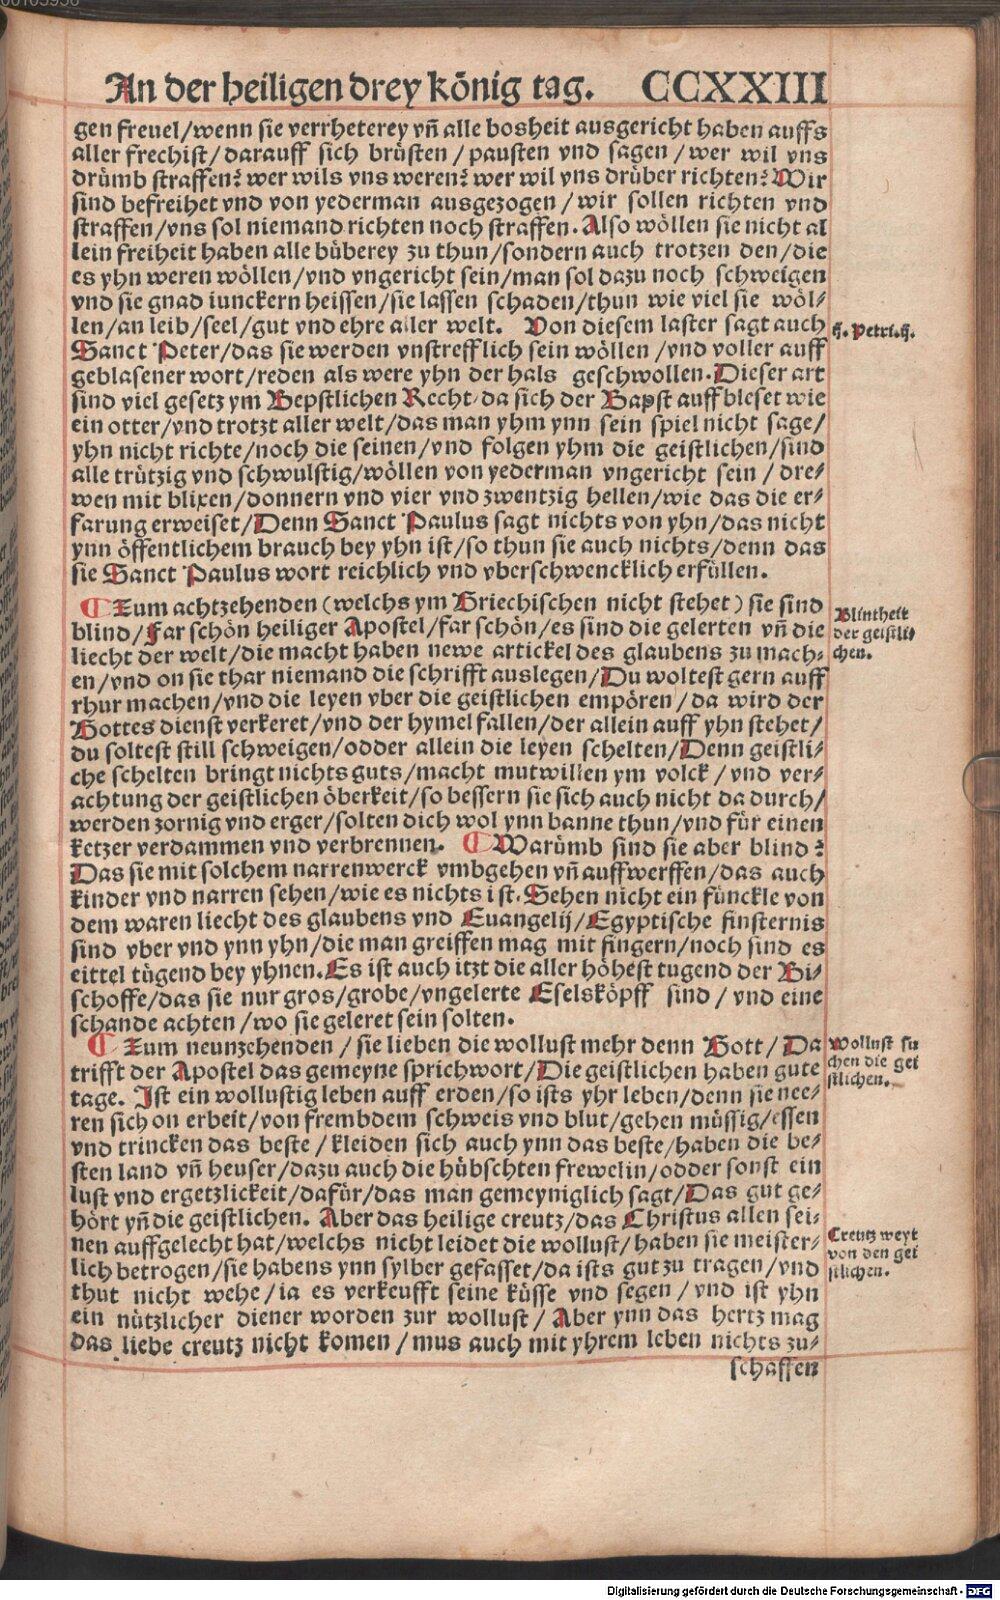 An der heiligen drey könig tag. CCXXIII
gen freuel/wenn sie verrheterey vñ alle bosheit ausgericht haben auffs
aller frechist/darauff sich brüsten/pausten vnd sagen/wer wil vns
drümb straffen? wer wils vns weren? wer wil vns drüber richten? Wir
sind befreihet vnd von yederman ausgezogen/wir sollen richten vnd
straffen/vns sol niemand richten noch straffen. Also wöllen sie nicht al
lein freiheit haben alle büberey zu thun/sondern auch trotzen den/die
es yhn weren wöllen/vnd vngericht sein/man sol dazu noch schweigen
vnd sie gnad iunckern heissen/sie lassen schaden/thun wie viel sie wöl-
len/an leib/seel/gut vnd ehre aller welt. Von diesem laster sagt auch
ij. Petri.ij.
Sanct Peter/das sie werden vnstrefflich sein wöllen/vnd voller auff
geblasener wort/reden als were yhn der hals geschwollen. Dieser art
sind viel gesetz ym Bepstlichen Recht da sich der Bapst auffbleset wie
ein otter/vnd trotzt aller welt/das man yhm ynn sein spiel nicht sage/
yhn nicht richte/noch die seinen/vnd folgen yhm die geistlichen/sind
alle trützig vnd schwulstig/wöllen von yederman vngericht sein/dre-
wen mit blixen/donnern vnd vier vnd zwentzig hellen/wie das die er-
farung erweiset/Denn Sanct Paulus sagt nichts von yhn/das nicht
ynn öffentlichem brauch bey yhn ist/so thun sie auch nichts/denn das
sie Sanct Paulus wort reichlich vnd vberschwencklich erfüllen.
Zum achtzehenden (welchs ym Griechischen nicht stehet) sie sind
blind/Far schön heiliger Apostel/far schön/es sind die gelerten vñ die
liecht der welt/die macht haben newe artickel des glaubens zu mach-
Blintheit
der geistli-
chen.
en/vnd on sie thar niemand die schrifft auslegen/Du woltest gern auff
rhur machen/vnd die leyen vber die geistlichen empören/da wird der
Gottes dienst verkeret/vnd der hymel fallen/der allein auff yhn stehet/
du soltest still schweigen/odder allein die leyen schelten/Denn geistli-
che schelten bringt nichts guts/macht mutwillen ym volck/vnd ver-
achtung der geistlichen öberkeit/so bessern sie sich auch nicht da durch/
werden zornig vnd erger/solten dich wol ynn banne thun/vnd für einen
ketzer verdammen vnd verbrennen. Warümb sind sie aber blind?
Das sie mit solchem narrenwerck vmbgehen vñ auffwerffen/das auch
kinder vnd narren sehen/wie es nichts ist. Sehen nicht ein fünckle von
dem waren liecht des glaubens vnd Euangelij/Egyptische finsternis
sind vber vnd ynn yhn/die man greiffen mag mit fingern/noch sind es
eittel tügend bey yhnen. Es ist auch itzt die aller höhest tugend der Bi-
schoffe/das sie nur gros/grobe/vngelerte Eselsköpff sind/vnd eine
schande achten/wo sie geleret sein solten.
Zum neunzehenden/sie lieben die wollust mehr denn Gott/Da
trifft der Apostel das gemeyne sprichwort/Die geistlichen haben gute
tage. Ist ein wollustig leben auff erden/so ists yhr leben/denn sie nee-
Wollust su
chen die gei
stlichen.
ren sich on erbeit/von frembdem schweis vnd blut/gehen müssig/essen
vnd trincken das beste/kleiden sich auch ynn das beste/haben die be-
sten land vñ heuser/dazu auch die hübschten frewelin/odder sonst ein
lust vnd ergetzlickeit/dafür/das man gemeyniglich sagt/Das gut ge-
hört yñ die geistlichen. Aber das heilige creutz/das Christus allen sei-
nen auffgelecht hat/welchs nicht leidet die wollust/haben sie meister-
lich betrogen/sie habens ynn sylber gefasset/da ists gut zu tragen/vnd
Creutz weyt
von den gei
stlichen.
thut nicht wehe/ia es verkeufft seine küsse vnd segen/vnd ist yhn
ein nützlicher diener worden zur wollust/Aber ynn das hertz mag
das liebe creutz nicht komen/mus auch mit yhrem leben nichts zu-
schaffen
Digitalisierung gefördert durch die Deutsche Forschungsgemeinschaft - DFG